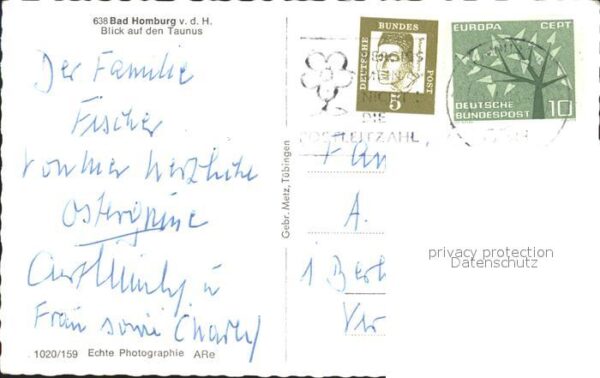 638 Bad Homburg v. d. H.
Blick auf den Taunus
Der Familie
Fischer
herzliche
Ostergrüsse
u
Frau sowie Charly
1020/159 Echte Photographie ARe
Gebr. Metz, Tübingen
DEUTSCHE BUNDES POST
5
EUROPA CEPT
DEUTSCHE
BUNDESPOST 10
NICHT
DIE
POSTLEITZAHL
A.
1 Berl
privacy protection
Datenschutz